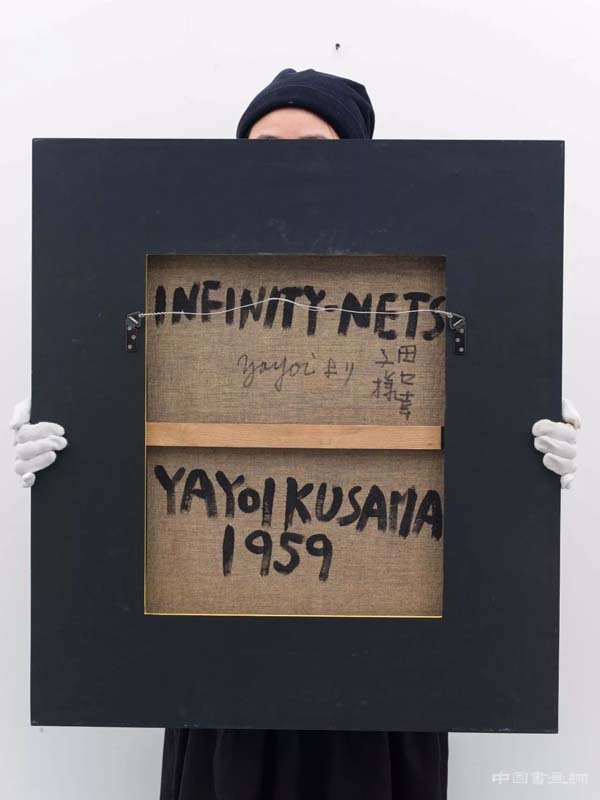 INFINITY-NETS
yayoi より
田口幸
子様
YAYOI KUSAMA
1959
中国書画網